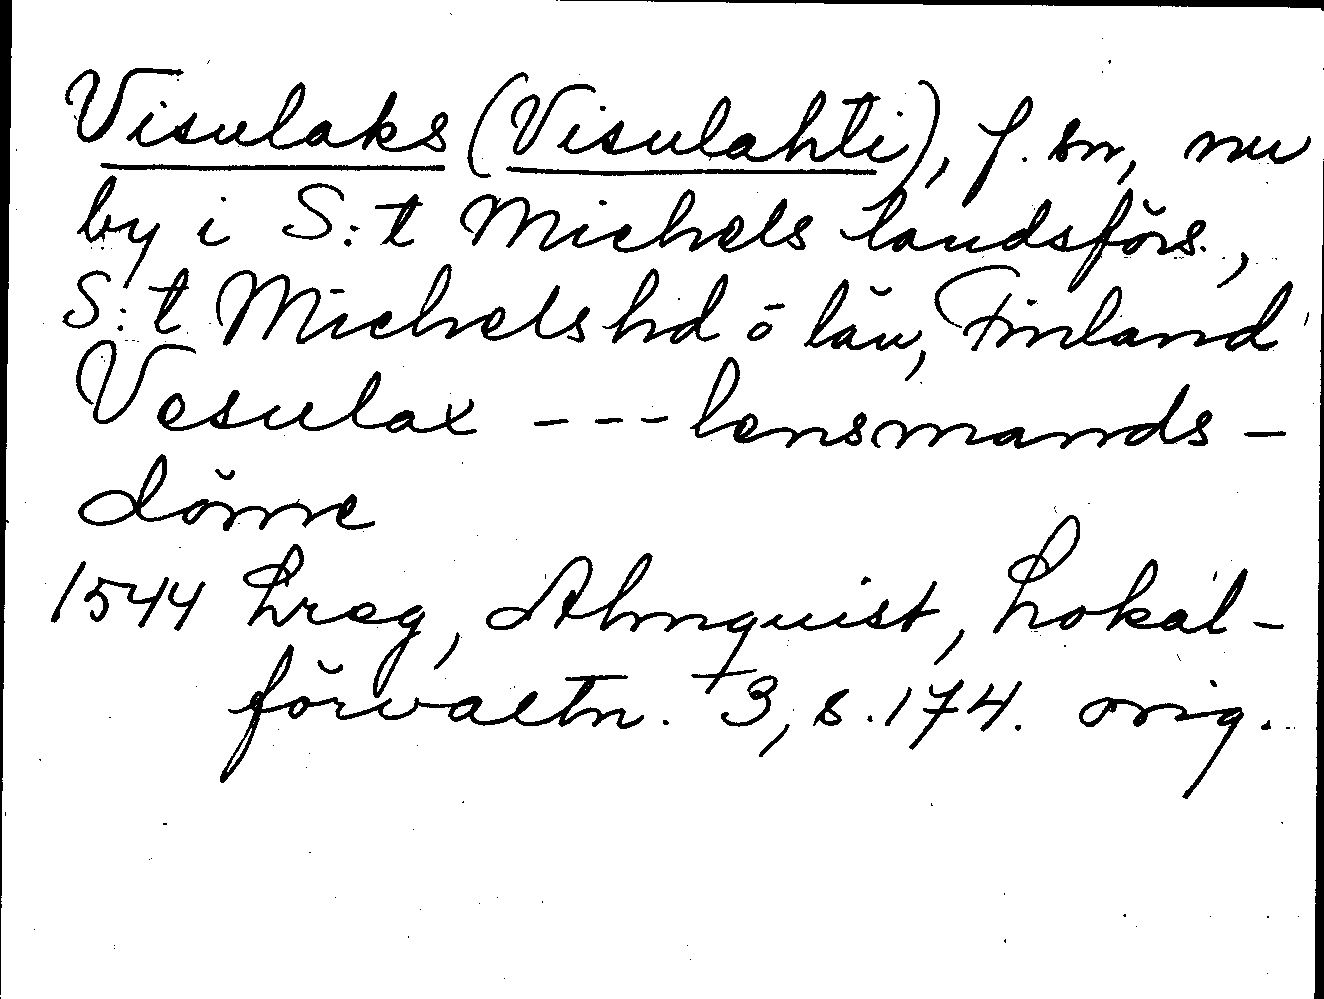 Visulaks (Visulahti), f. sn, nu
by i S:t Michels landsförs.,
S:t Michels hd o län, Finland
Vesulax --- lensmands-
döme
1544 Lreg, Almquist, Lokal-
förvaltn. 3, s. 174. orig.